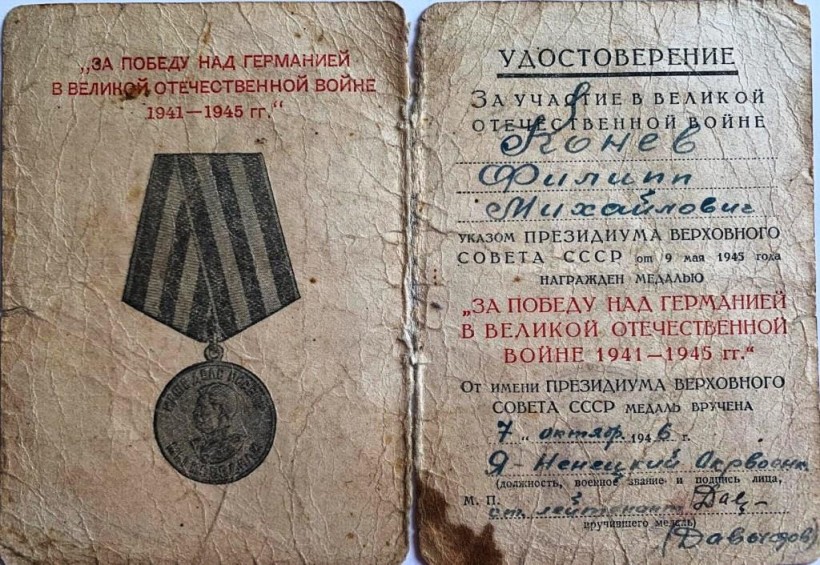 „ЗА ПОБЕДУ НАД ГЕРМАНИЕЙ
В ВЕЛИКОЙ ОТЕЧЕСТВЕННОЙ ВОЙНЕ
1941—1945 гг.“
НАШЕ ДЕЛО ПРАВОЕ
МЫ ПОБЕДИЛИ
УДОСТОВЕРЕНИЕ
ЗА УЧАСТИЕ В ВЕЛИКОЙ
ОТЕЧЕСТВЕННОЙ ВОЙНЕ
Конев
Филипп
Михайлович
УКАЗОМ ПРЕЗИДИУМА ВЕРХОВНОГО
СОВЕТА СССР от 9 мая 1945 года
НАГРАЖДЕН МЕДАЛЬЮ
„ЗА ПОБЕДУ НАД ГЕРМАНИЕЙ
В ВЕЛИКОЙ ОТЕЧЕСТВЕННОЙ
ВОЙНЕ 1941—1945 гг.“
ОТ ИМЕНИ ПРЕЗИДИУМА ВЕРХОВНОГО
СОВЕТА СССР МЕДАЛЬ ВРУЧЕНА
7 „ октяб. 1946 г.
Я-Ненецкий Окрвоенк
(должность, военное звание и подпись лица,
М. П. ст. лейтенант
вручившего медаль)
(Давыдов)